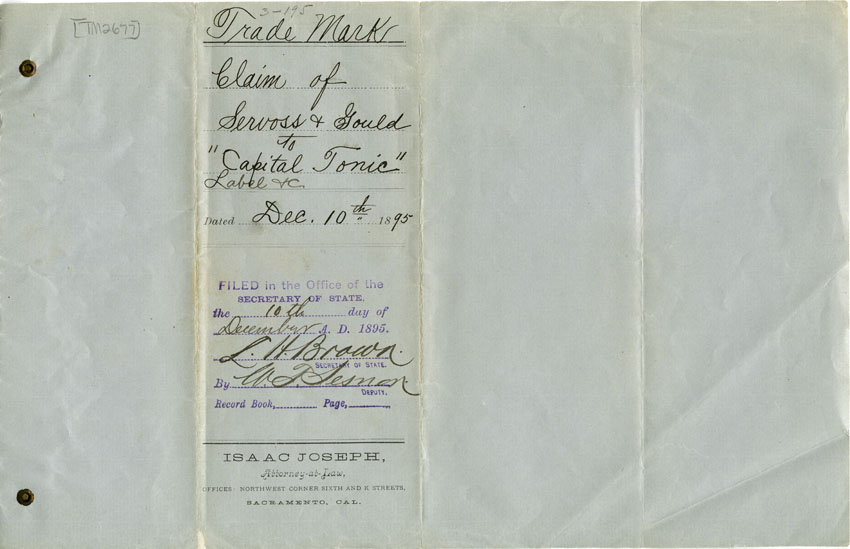 [TM2677]
3-195
Trade Mark
Claim of
Servoss & Gould
to
"Capital Tonic"
Label &c
Dated Dec. 10th 1895
FILED in the Office of the
SECRETARY OF STATE.
the 10th day of
December A. D. 1895.
L. H. Brown.
SECRETARY OF STATE.
By W. T. Sesnon.
DEPUTY.
Record Book, Page,
ISAAC JOSEPH,
Attorney-at-Law,
OFFICES: NORTHWEST CORNER SIXTH AND K STREETS,
SACRAMENTO, CAL.